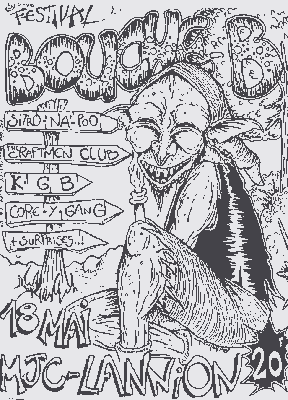 FESTIVAL
BOUCHE B
SITRO-NA-POO
CRAFTMEN CLUB
K! G B
CORE-Y-GANG
+ SURPRISES...!
18 MAI
MJC-LANNION
20F